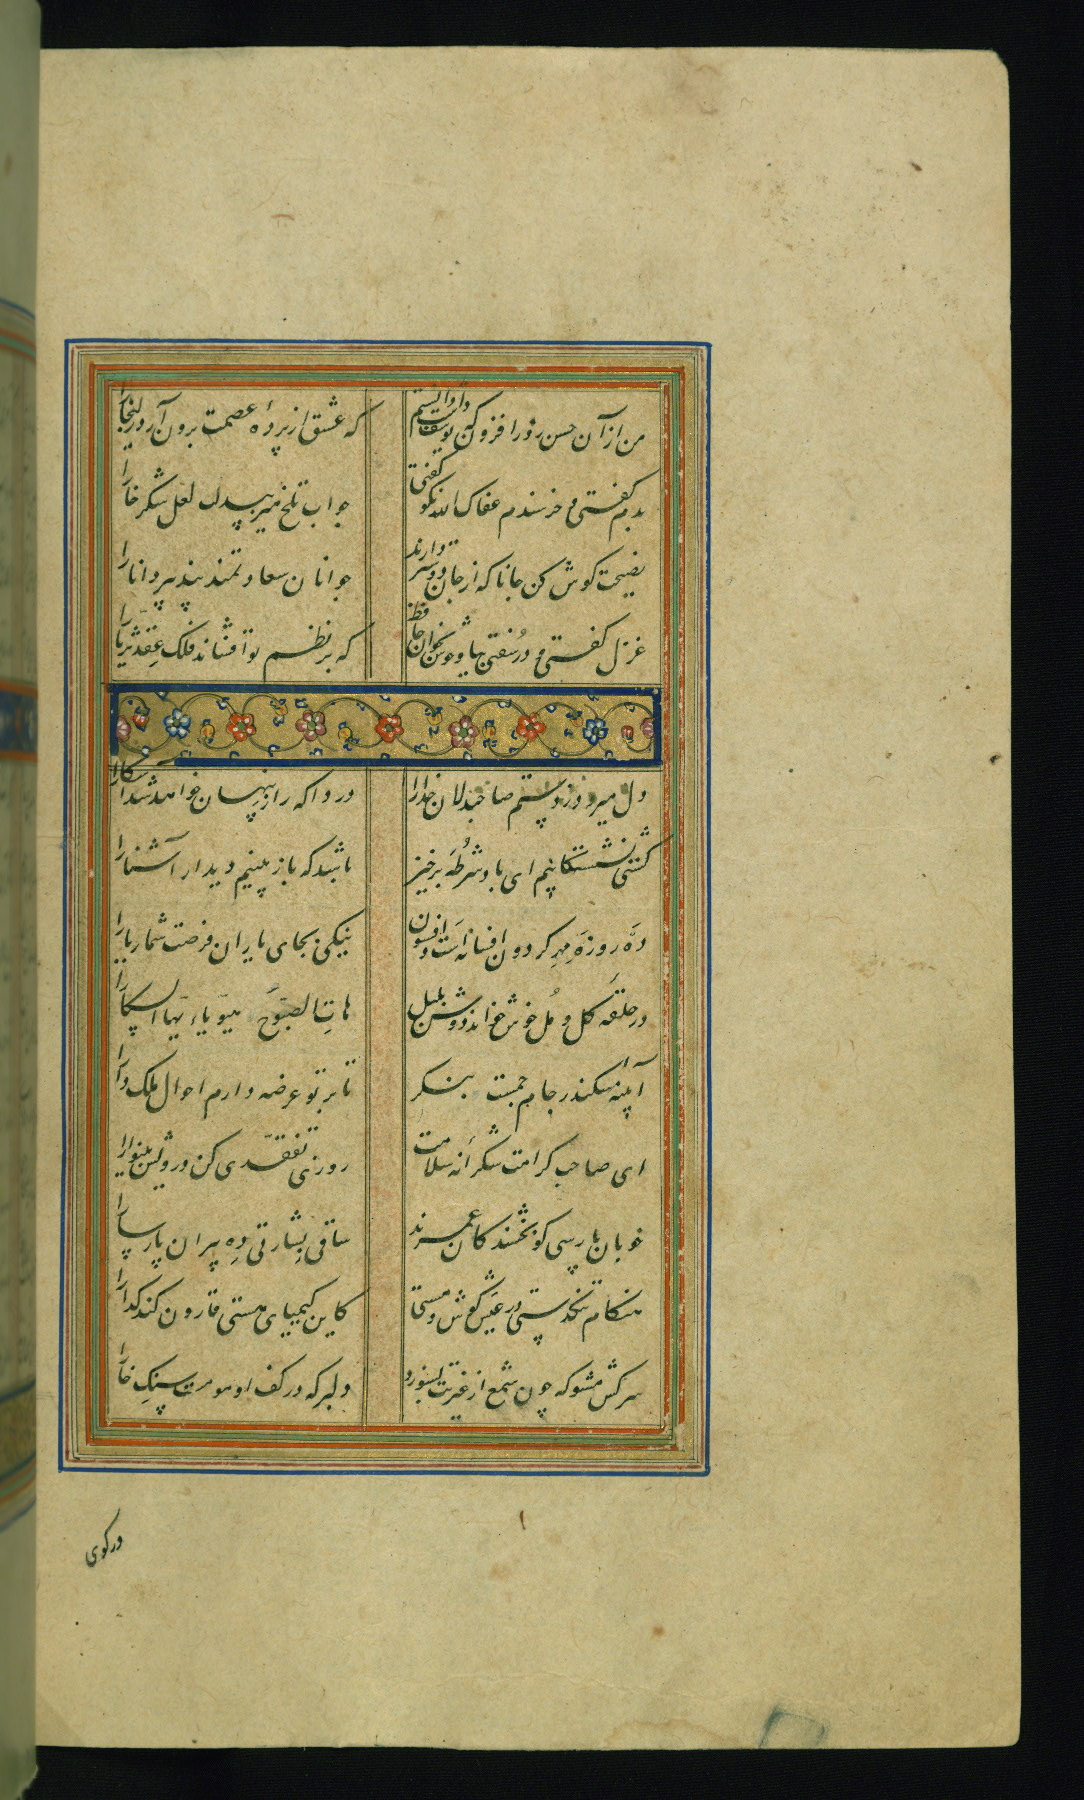 من از آن حسن روز افزون که یوسف داشت دانستم
که عشق از پردهٔ عصمت برون آرد زلیخا را
بدم گفتی و خرسندم عفاک الله نکو گفتی
جواب تلخ میزیبد لب لعل شکرخا را
نصیحت کوش کن جانا که از جان دوستر دارند
جوانان سعادتمند پند پیر دانا را
غزل گفتی و در سفتی بیا و خوش بخوان حافظ
که بر نظم تو افشاند فلک عقد ثریا را
دل میرود ز دستم صاحبدلان خدا را
دردا که راز پنهان خواهد شد آشکارا
کشتی نشستکانیم ای باد شرطه برخیز
باشد که باز بینیم دیدار آشنا را
ده روزه مهر کردون افسانه است و افسون
نیکی بجای یاران فرصت شمار یارا
در حلقه کل و مل خوش خواند دوش بلبل
هات الصبوح هیوا یا ایها السکارا
آیینه سکندر جام جمست بنکر
تا بر تو عرضه دارم احوال ملک دارا
ای صاحب کرامت شکرانه سلامت
روزی تفقدی کن درویش بینوا را
خوبان پارسی کو بخشندکان عمرند
ساقی بشارتی ده پیران پارسا را
هنکام تنکدستی در عیش کوش و مستی
کاین کیمیای هستی قارون کند کدا را
سرکش مشو که چون شمع از غیرتت بسوزد
دلبر که در کف او مومست سنک خارا
در کوی